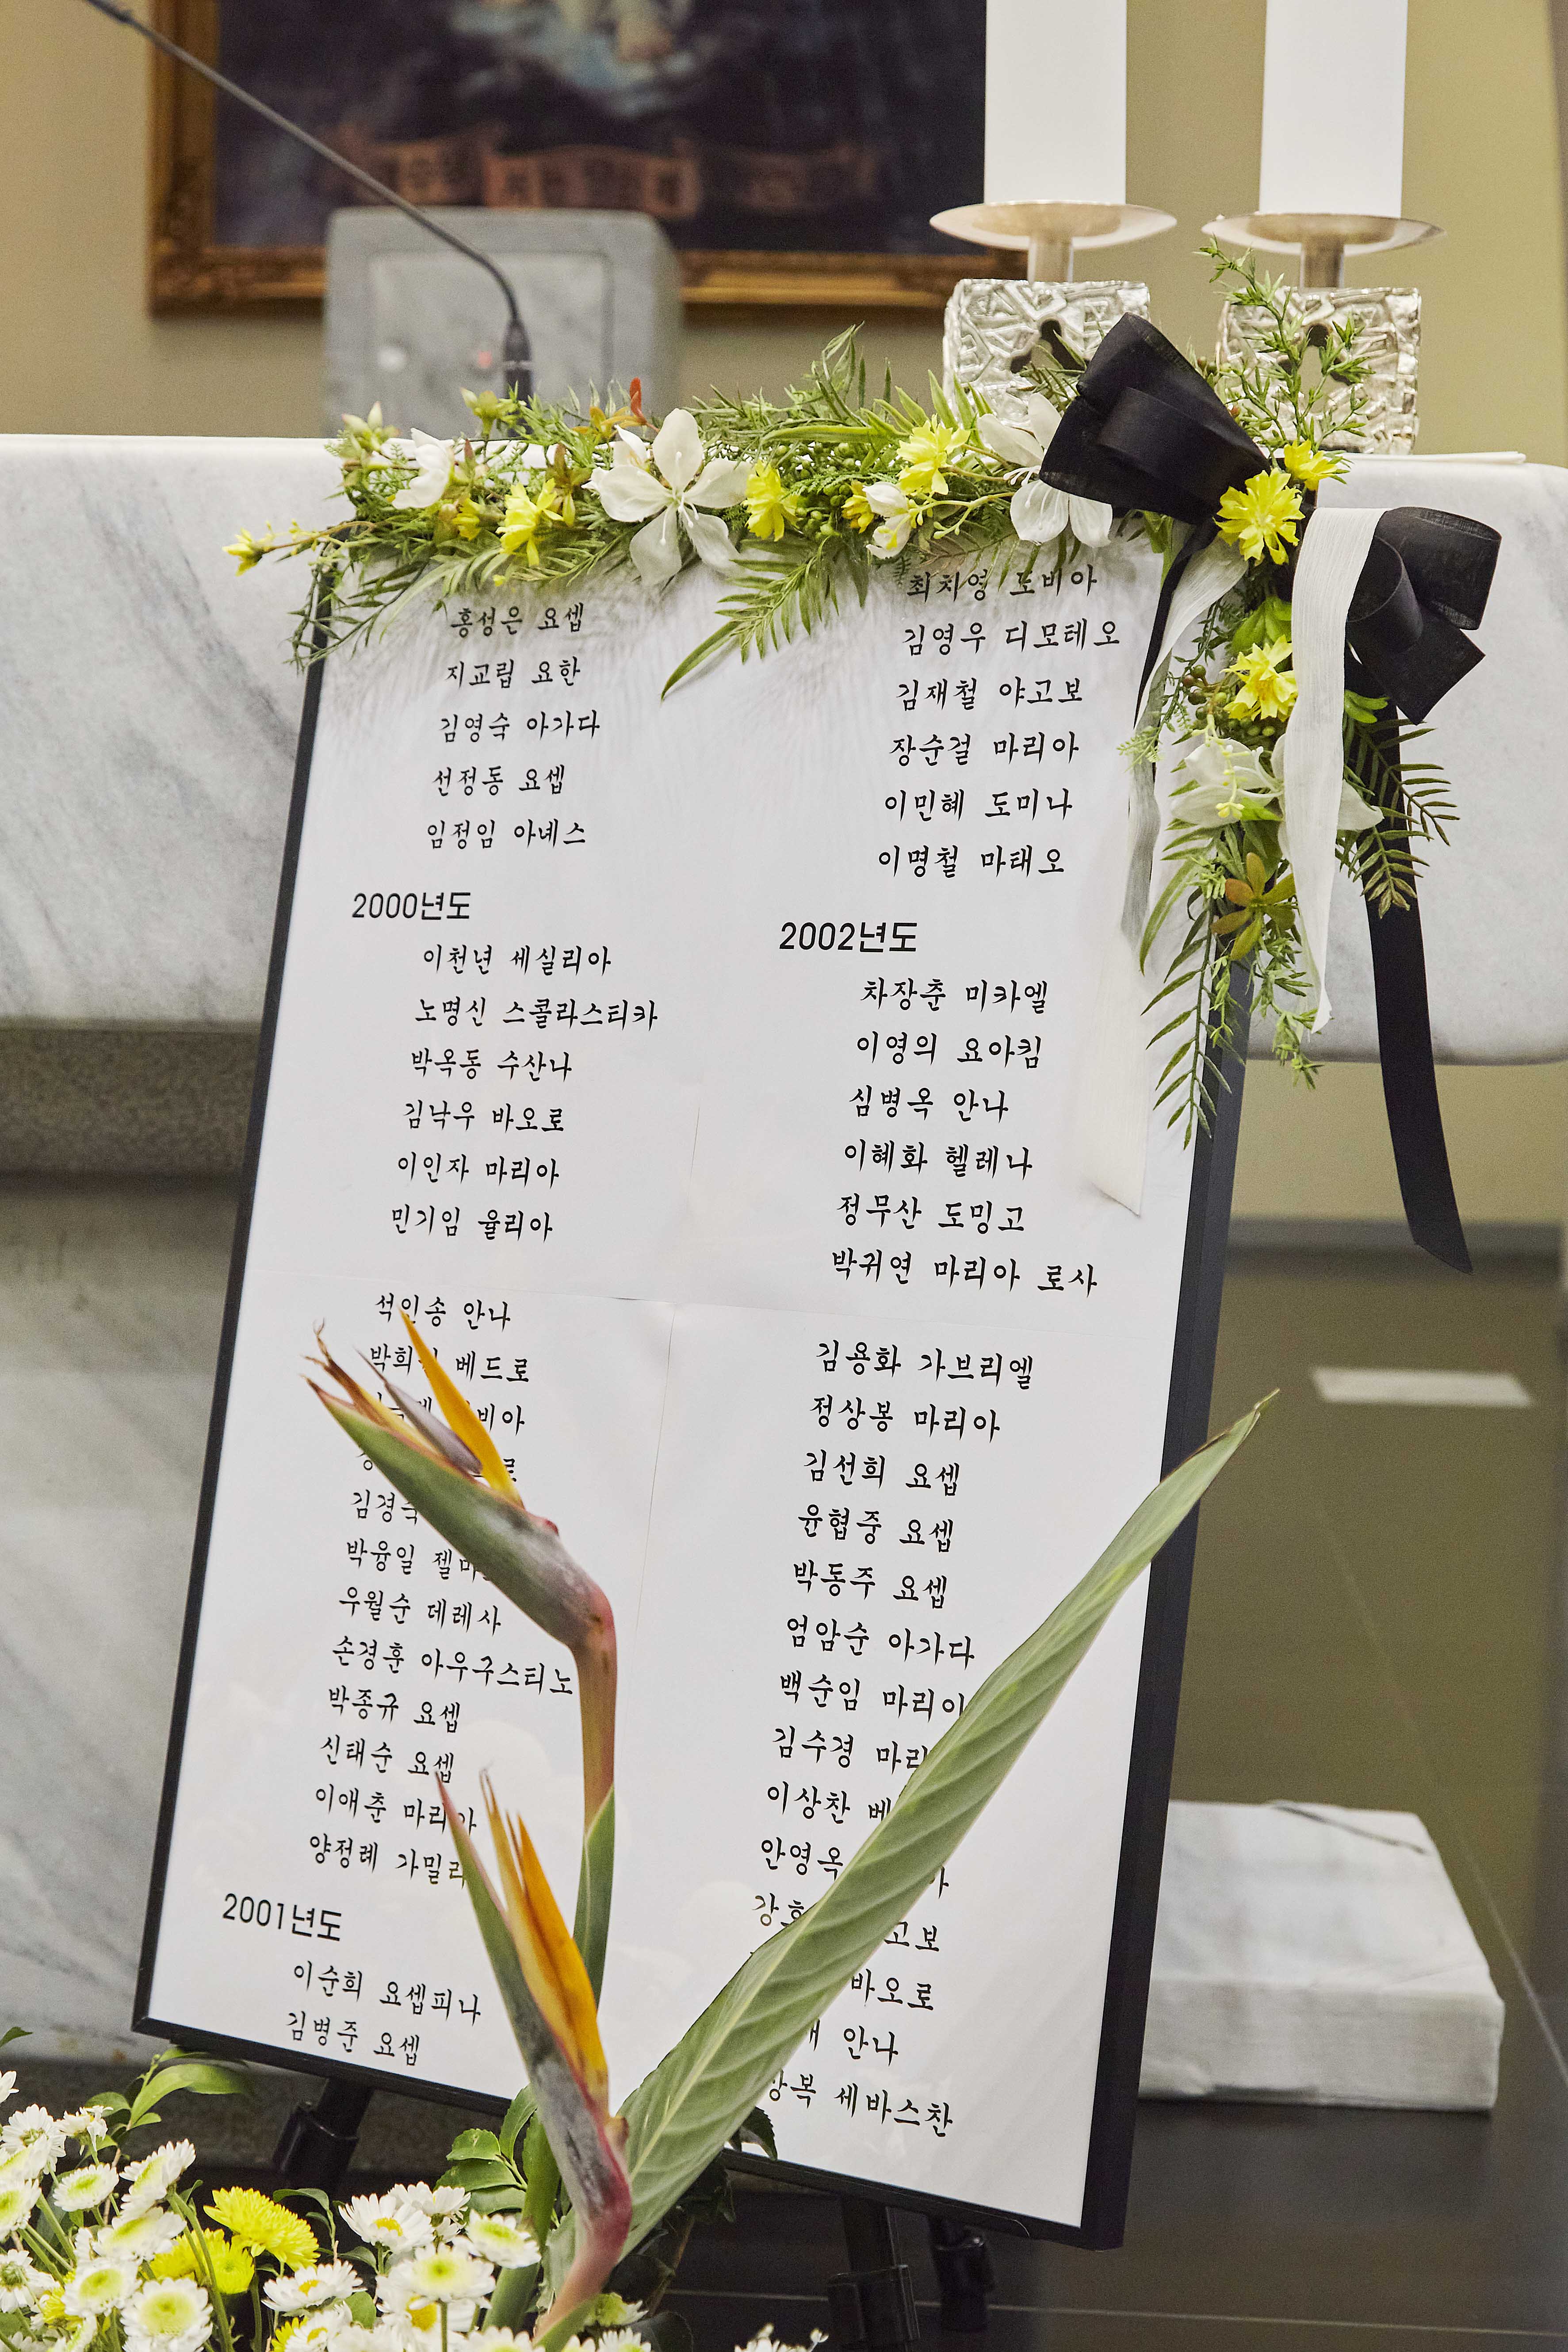 홍성은 요셉
지교립 요한
김영숙 아가다
선정동 요셉
임정임 아녜스
2000년도
이천년 세실리아
노명신 스콜라스티카
박옥동 수산나
김낙우 바오로
이인자 마리아
민기임 율리아
석인송 안나
베드로
박용일
우월순 데레사
손경훈 아우구스티노
박종규 요셉
신태순 요셉
이애춘 마리아
양정례
2001년도
이순희 요셉피나
김병준 요셉
최치영 토비아
김영우 디모테오
김재철 야고보
장순걸 마리아
이민혜 도미나
이명철 마태오
2002년도
차장춘 미카엘
이영의 요아킴
심병옥 안나
이혜화 헬레나
정무산 도밍고
박귀연 마리아 로사
김용화 가브리엘
정상봉 마리아
김선희 요셉
윤협중 요셉
박동주 요셉
엄암순 아가다
백순임 마리아
김수경
이상찬
안영옥
바오로
안나
세바스찬